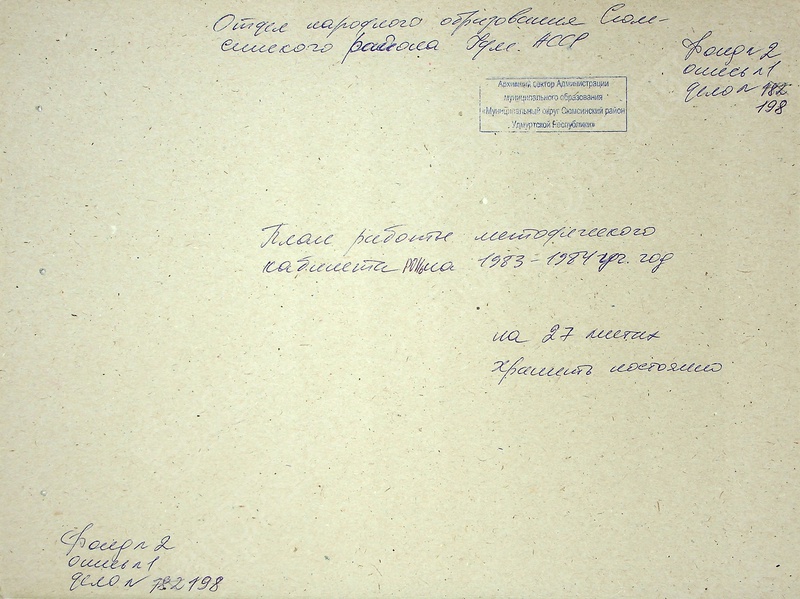 Отдел народного образования Сюм-
синского района Удм. АССР
Фонд № 2
опись № 1
дело № 182
198
Архивный сектор Администрации
муниципального образования
«Муниципальный округ Сюмсинский район
Удмуртской Республики»
План работы методического
кабинета РОНО на 1983-1984 уч. год
на 27 листах
Хранить постоянно
Фонд № 2
опись № 1
дело № 182 198